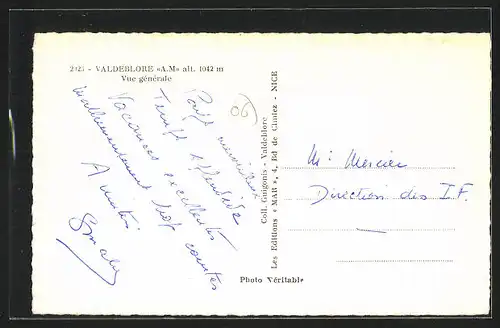 2925 - VALDEBLORE «A.M» alt. 1042 m
Vue générale
Pays merveilleux
Temps splendide
Vacances excellentes
malheureusement trop courtes
Amitiés
06
Coll. Guigonis - Valdeblore
Les Editions « MAR », 4, Bd de Cimiez - NICE
Mr Mercier
Direction des I.F.
Photo Véritable